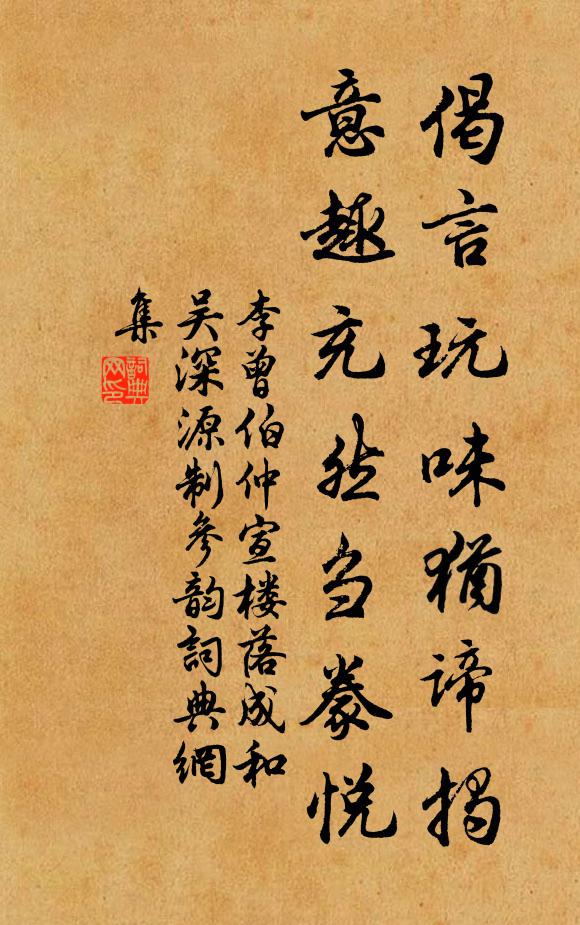 偈言玩味猶諦揭
意趣充然当豢悦
李曾伯仲宣楼落成和
吴深源制参韵詞典網
集
詞典网印